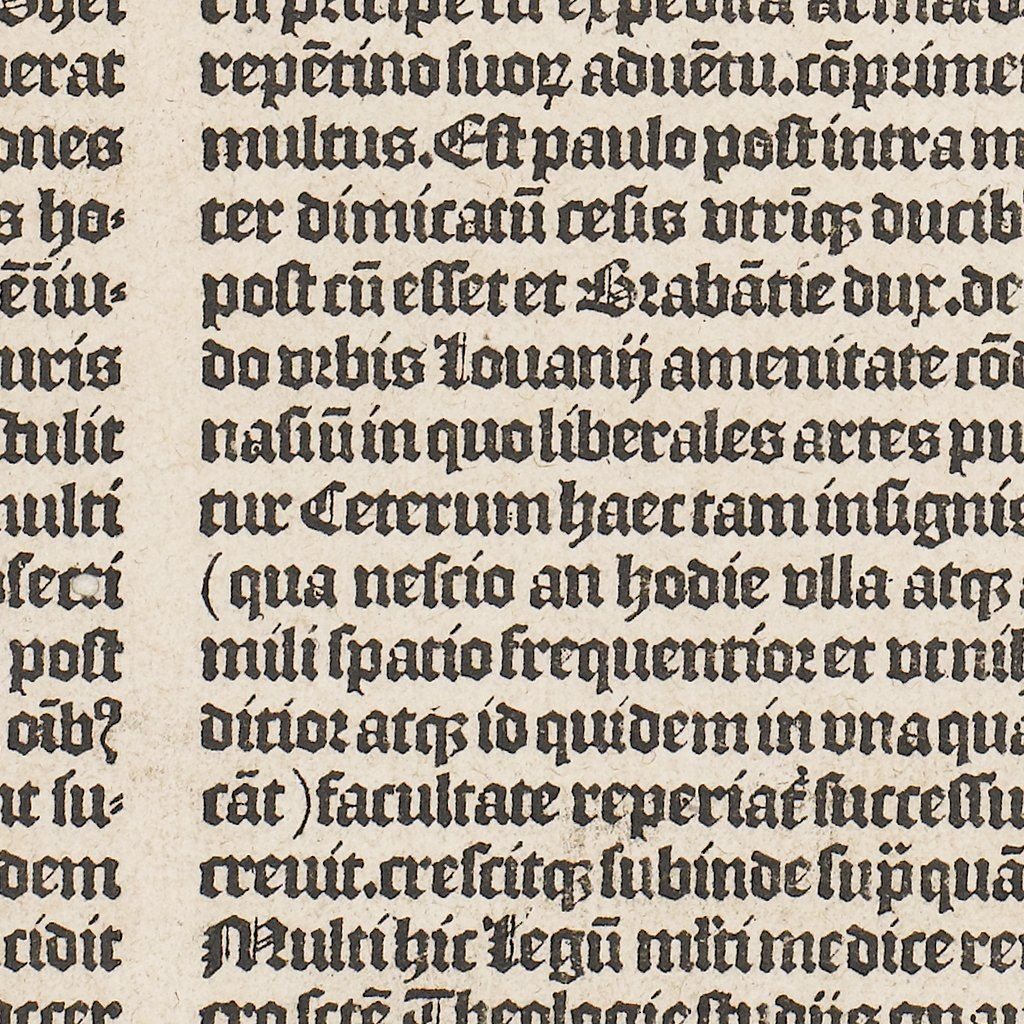 erat
ones
s ho⸗
ēiiu⸗
uris
ſtulit
multi
ſecti
poſt
oībꝰ
nt ſu⸗
dem
cidit
repētino ſuoꝝ aduētu. cōprime
multus. Eſt paulo poſt intra m
ter dimicatū ceſis vtrīqꝫ ducib
poſt cū eſſet et Brabātie dux. de
do vrbis Louanij amenitate cōd
naſiū in quo liberales artes pu
tur Ceterum haec tam inſignis
(qua neſcio an hodie vlla atqꝫ
mili ſpatio frequentior et vt nih
ditior atqꝫ id quidem in vna qua
cāt) facultate reperiat᷑ ſucceſſu
creuit. creſcitqꝫ ſubinde ſup̄ quā
Multi hic Legū ml̄ti medice re